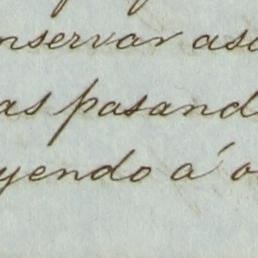 nservar asc
as pasand
yendo a' o